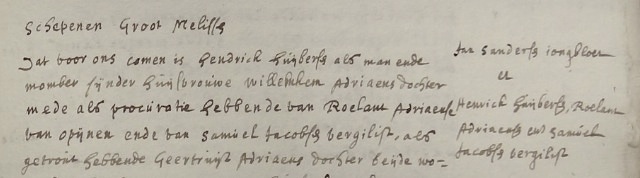 Schepenen Groot Melisse
Dat voor ons comen is hendrick huijbersse als man ende
momber sijnder huijsvrouwe willemken Adriaens dochter
mede als procuratie hebbende van Roelant Adriaense
van opijnen ende van samuel Jacobsse vergilist, als
getrout hebbende Geertruijt Adriaens dochter beijde wo-
Jan sanderse jongbloet
et
Henrick huijbersse, Roelant
Adriaense ende samuel
Jacobsse vergilist